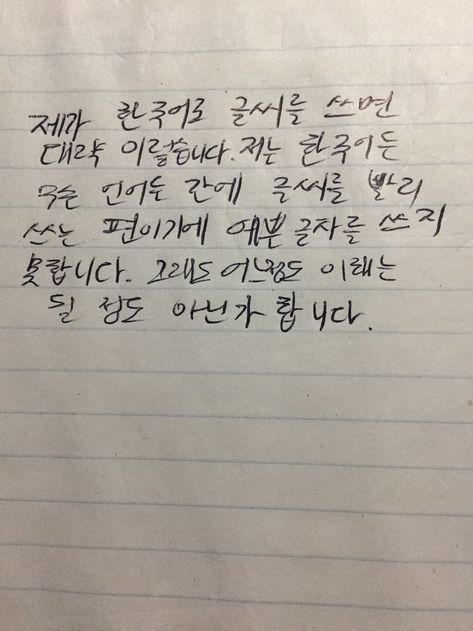 제가 한국어로 글씨를 쓰면
대략 이렇습니다. 저는 한국어든
무슨 언어든 간에 글씨를 빨리
쓰는 편이기에 예쁜 글자를 쓰지
못합니다. 그래도 어느정도 이해는
될 정도 아닌가 합니다.